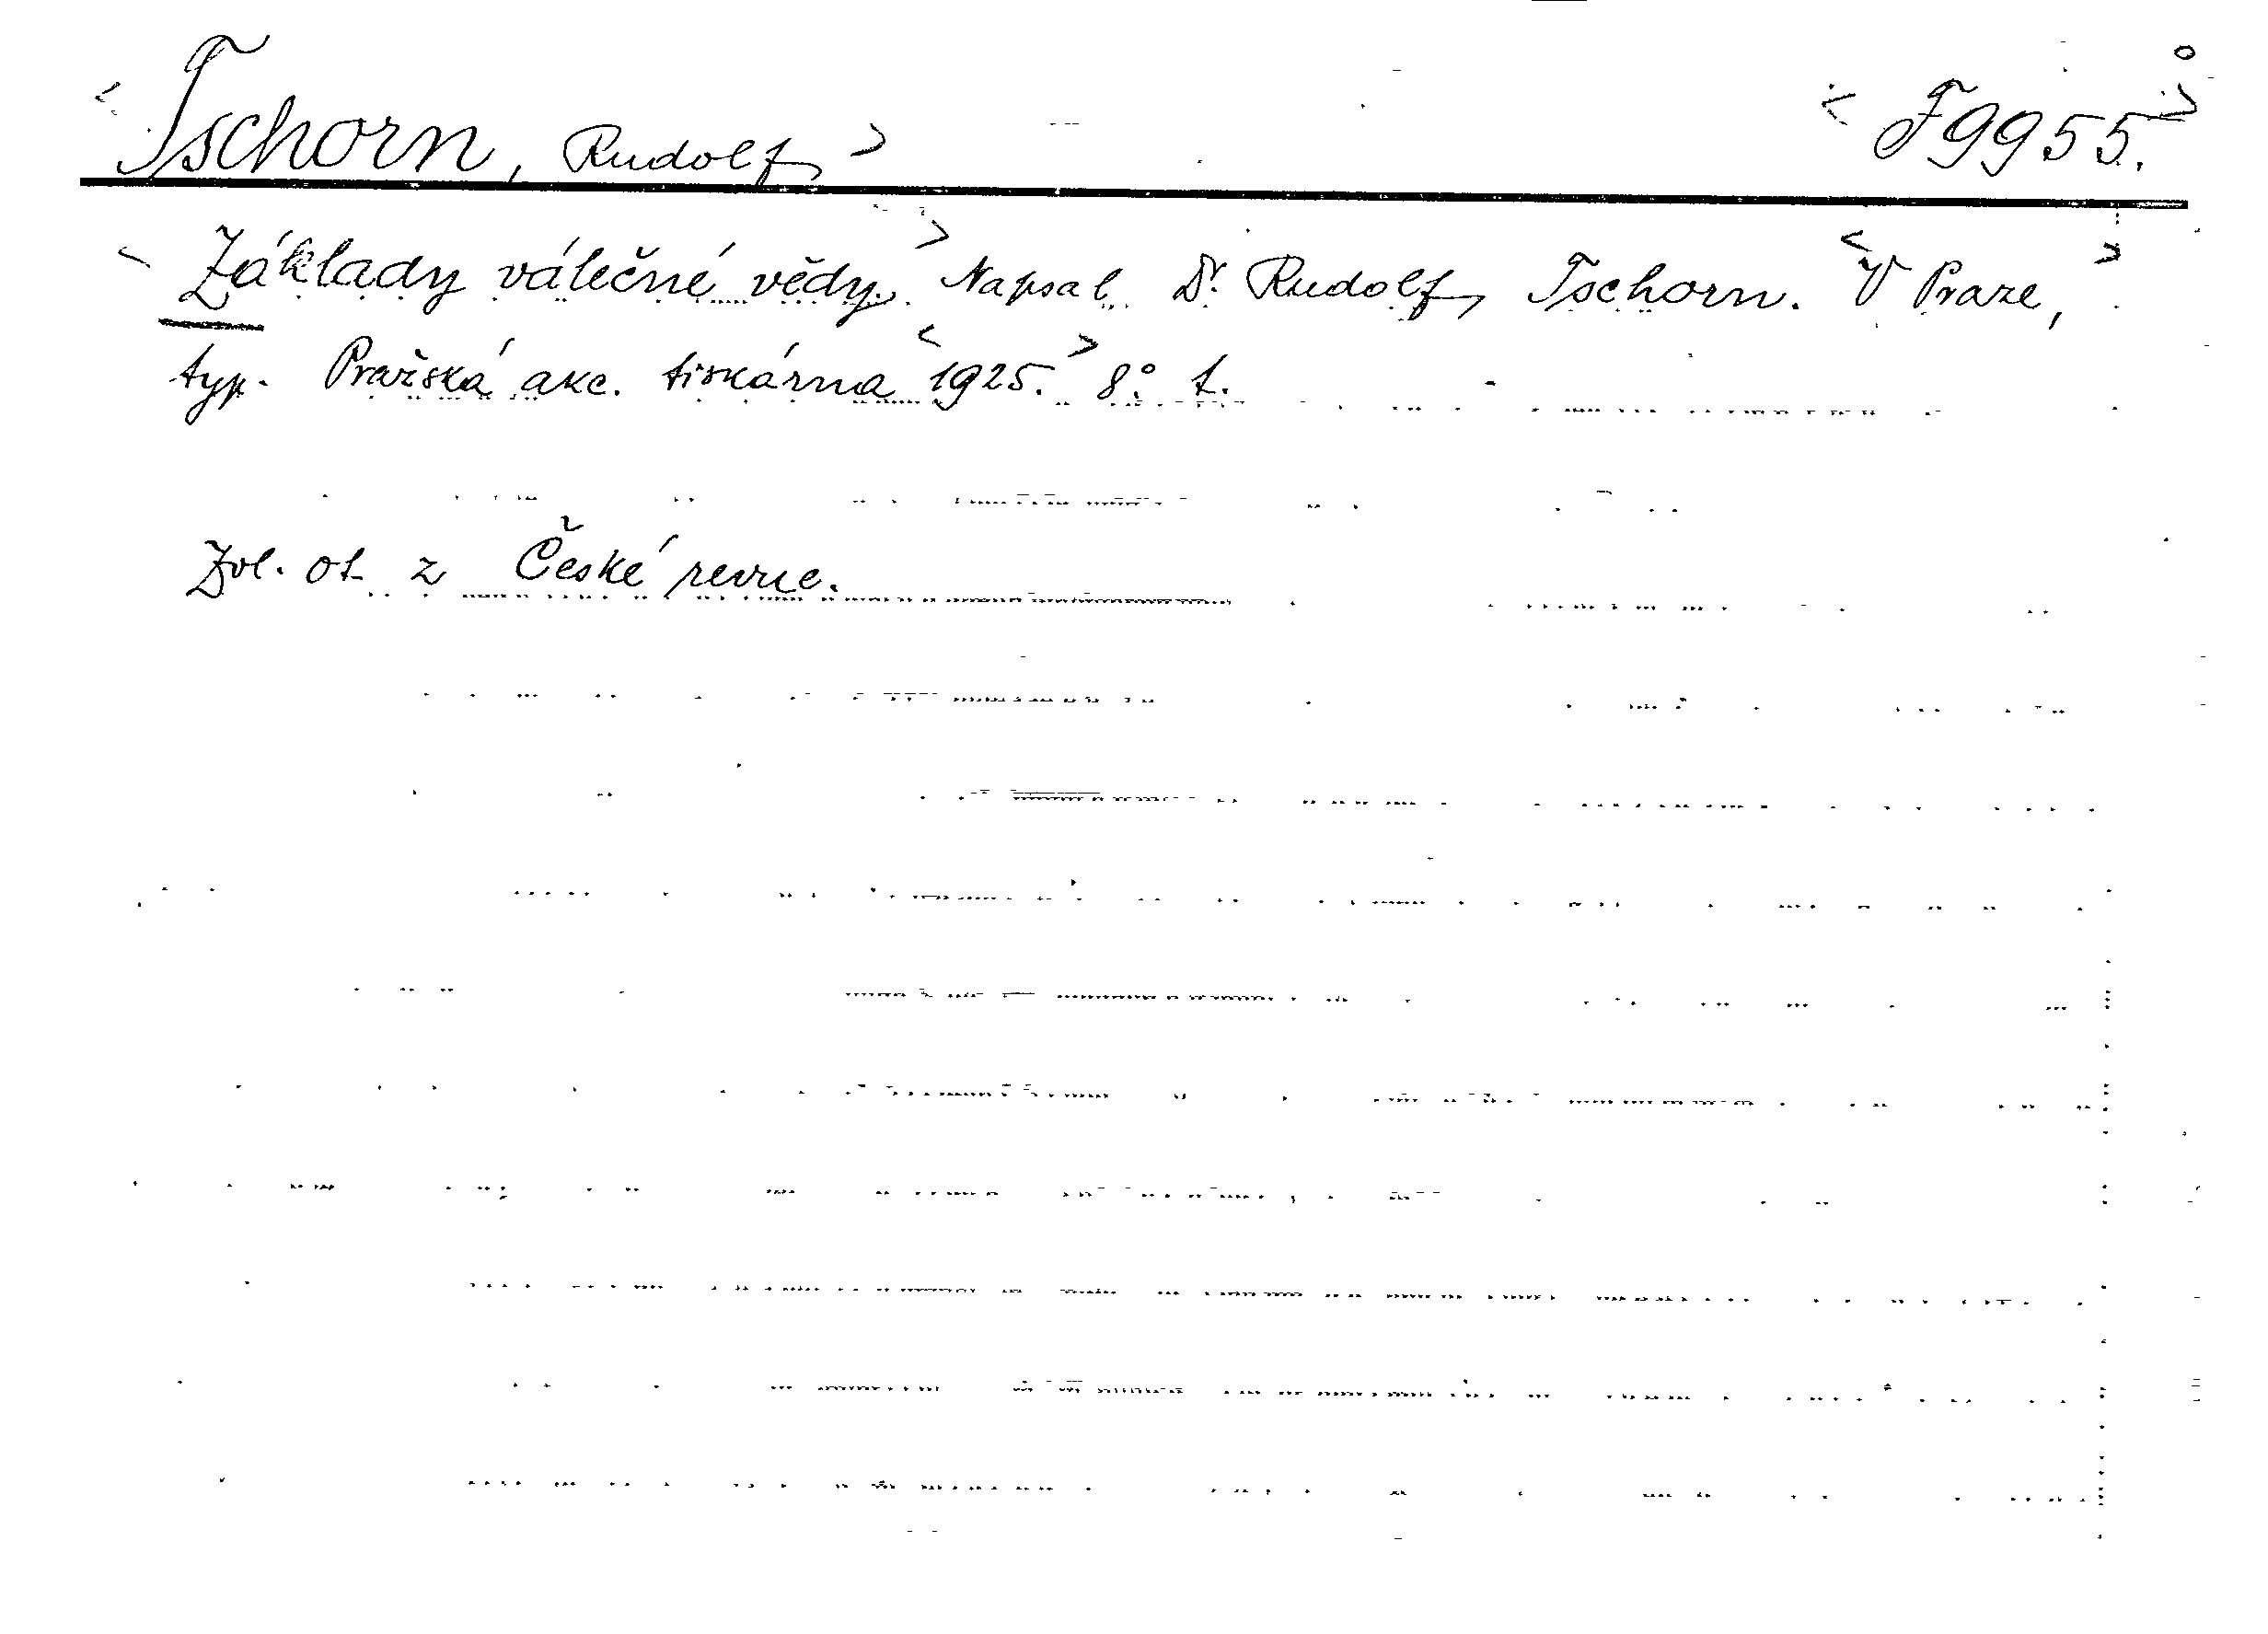 <Tschorn, Rudolf> <F9955.>
<Základy válečné vědy.> Napsal Dr Rudolf Tschorn. <V Praze,>
typ. Pražská akc. tiskárna <1925.> 8° t.
Zvl. ot. z České revue.